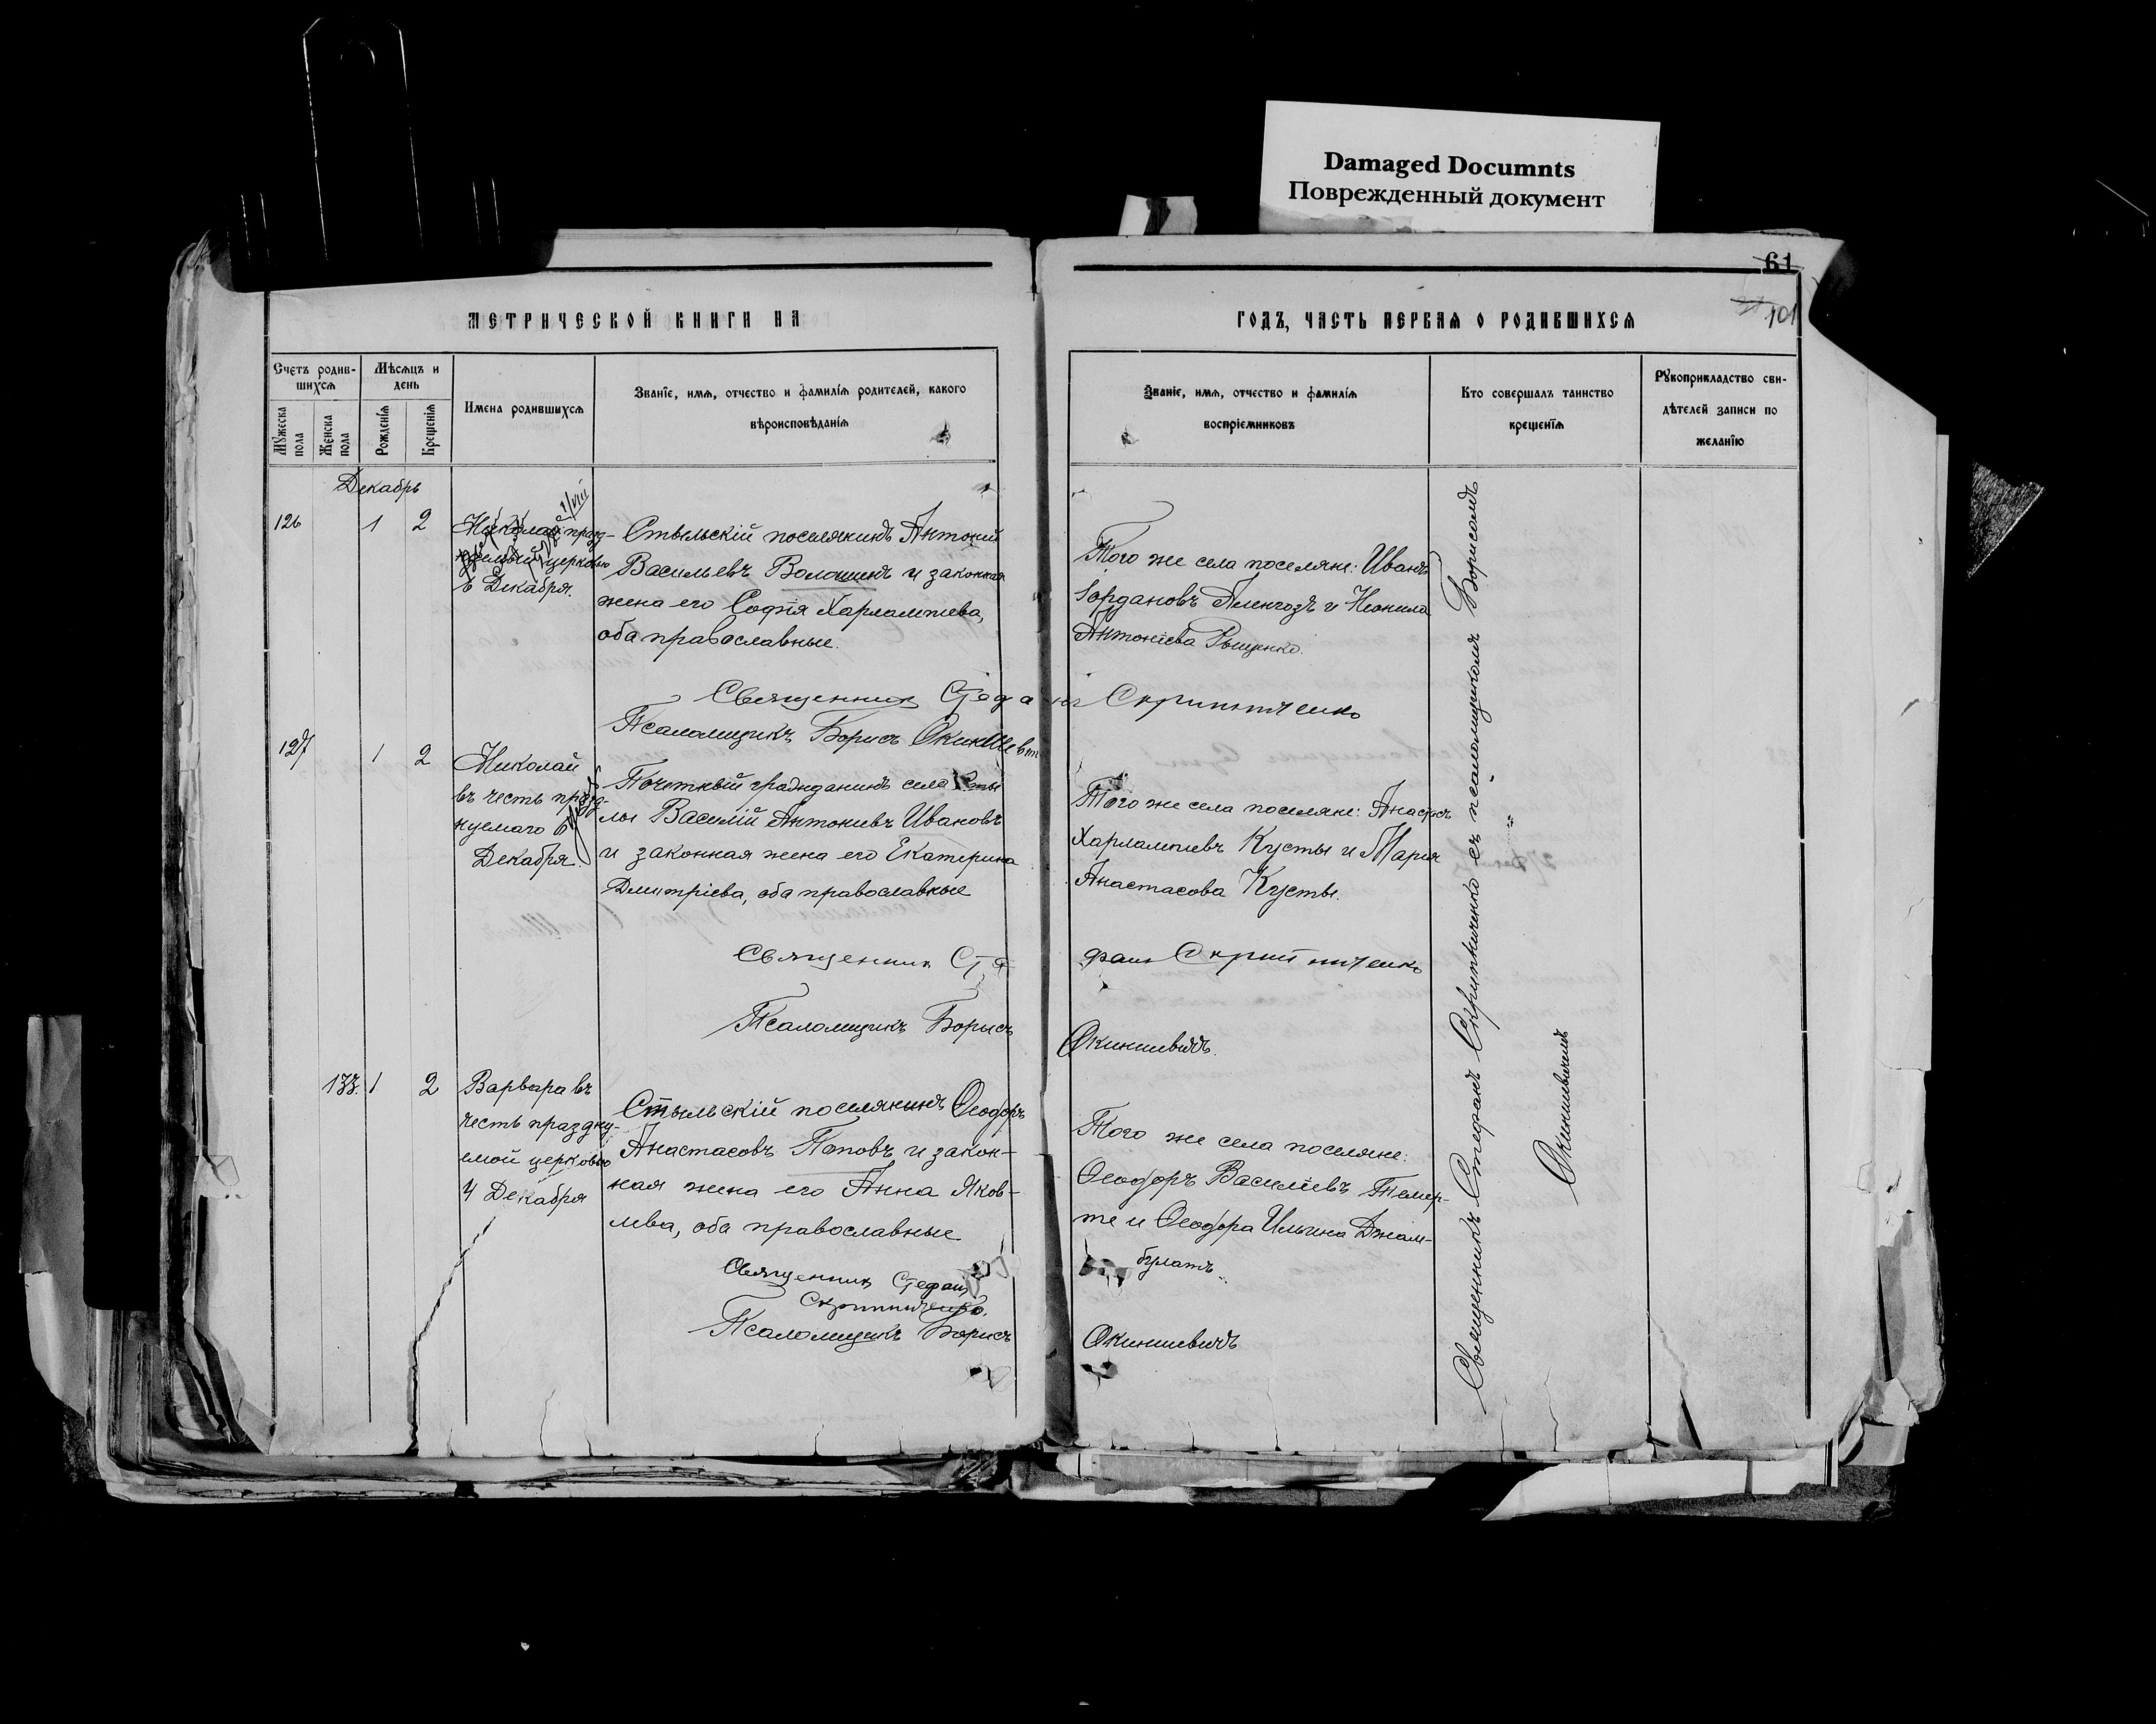 Damaged Documnts
Поврежденный документ
61
101
МЕТРИЧЕСКОЙ КНИГИ НА
ГОДЪ, ЧАСТЬ ПЕРВАЯ О РОДИВШИХСЯ
Счетъ родив-
шихся
Мужеска пола
Женска пола
Мѣсяцъ и
день
Рожденія
Крещенія
Имена родившихся
Званіе, имя, отчество и фамилія родителей, какого
вѣроисповѣданія
Званіе, имя, отчество и фамилія
воспріемниковъ
Кто совершалъ таинство
крещенія
Рукоприкладство сви-
дѣтелей записи по
желанію
Декабрь
126
1
2
Николай празд-
церковью
6 Декабря.
Стыльскій поселянинъ Антоній
Васильевъ Волошинъ и законная
жена его Софія Харлампіева,
оба православные.
Того же села поселяне: Иванъ
Іордановъ и Неонила
Антоніева
Священник Стефан Скрипниченко
Псаломщикъ Борисъ Окиншевичъ
127
1
2
Николай
въ честь празд-
нуемаго 6
Декабря.
Почетный гражданинъ села Сты
лы Василій Антоніевъ Ивановъ
и законная жена его Екатерина
Дмитріева, оба православные
Того же села поселяне: Анастасъ
Харлампіевъ Кусты и Марія
Анастасова Кусты.
Священник Стефан Скрипниченко
Псаломщикъ Борисъ Окиншевичъ.
133.
1
2
Варвара въ
честь праздну-
емой церковью
4 Декабря
Стыльскій поселянинъ Ѳеодоръ
Анастасовъ Поповъ и закон-
ная жена его Анна Яков-
лева, оба православные
Того же села поселяне:
Ѳеодоръ Василіевъ Темер-
те и Ѳеодора Ильина Джам-
булатъ.
Священник Стефан
Скрипниченко.
Псаломщикъ Борисъ Окиншевичъ
Священникъ Стефанъ Скрипниченко съ псаломщикомъ Борисомъ
Окиншевичемъ